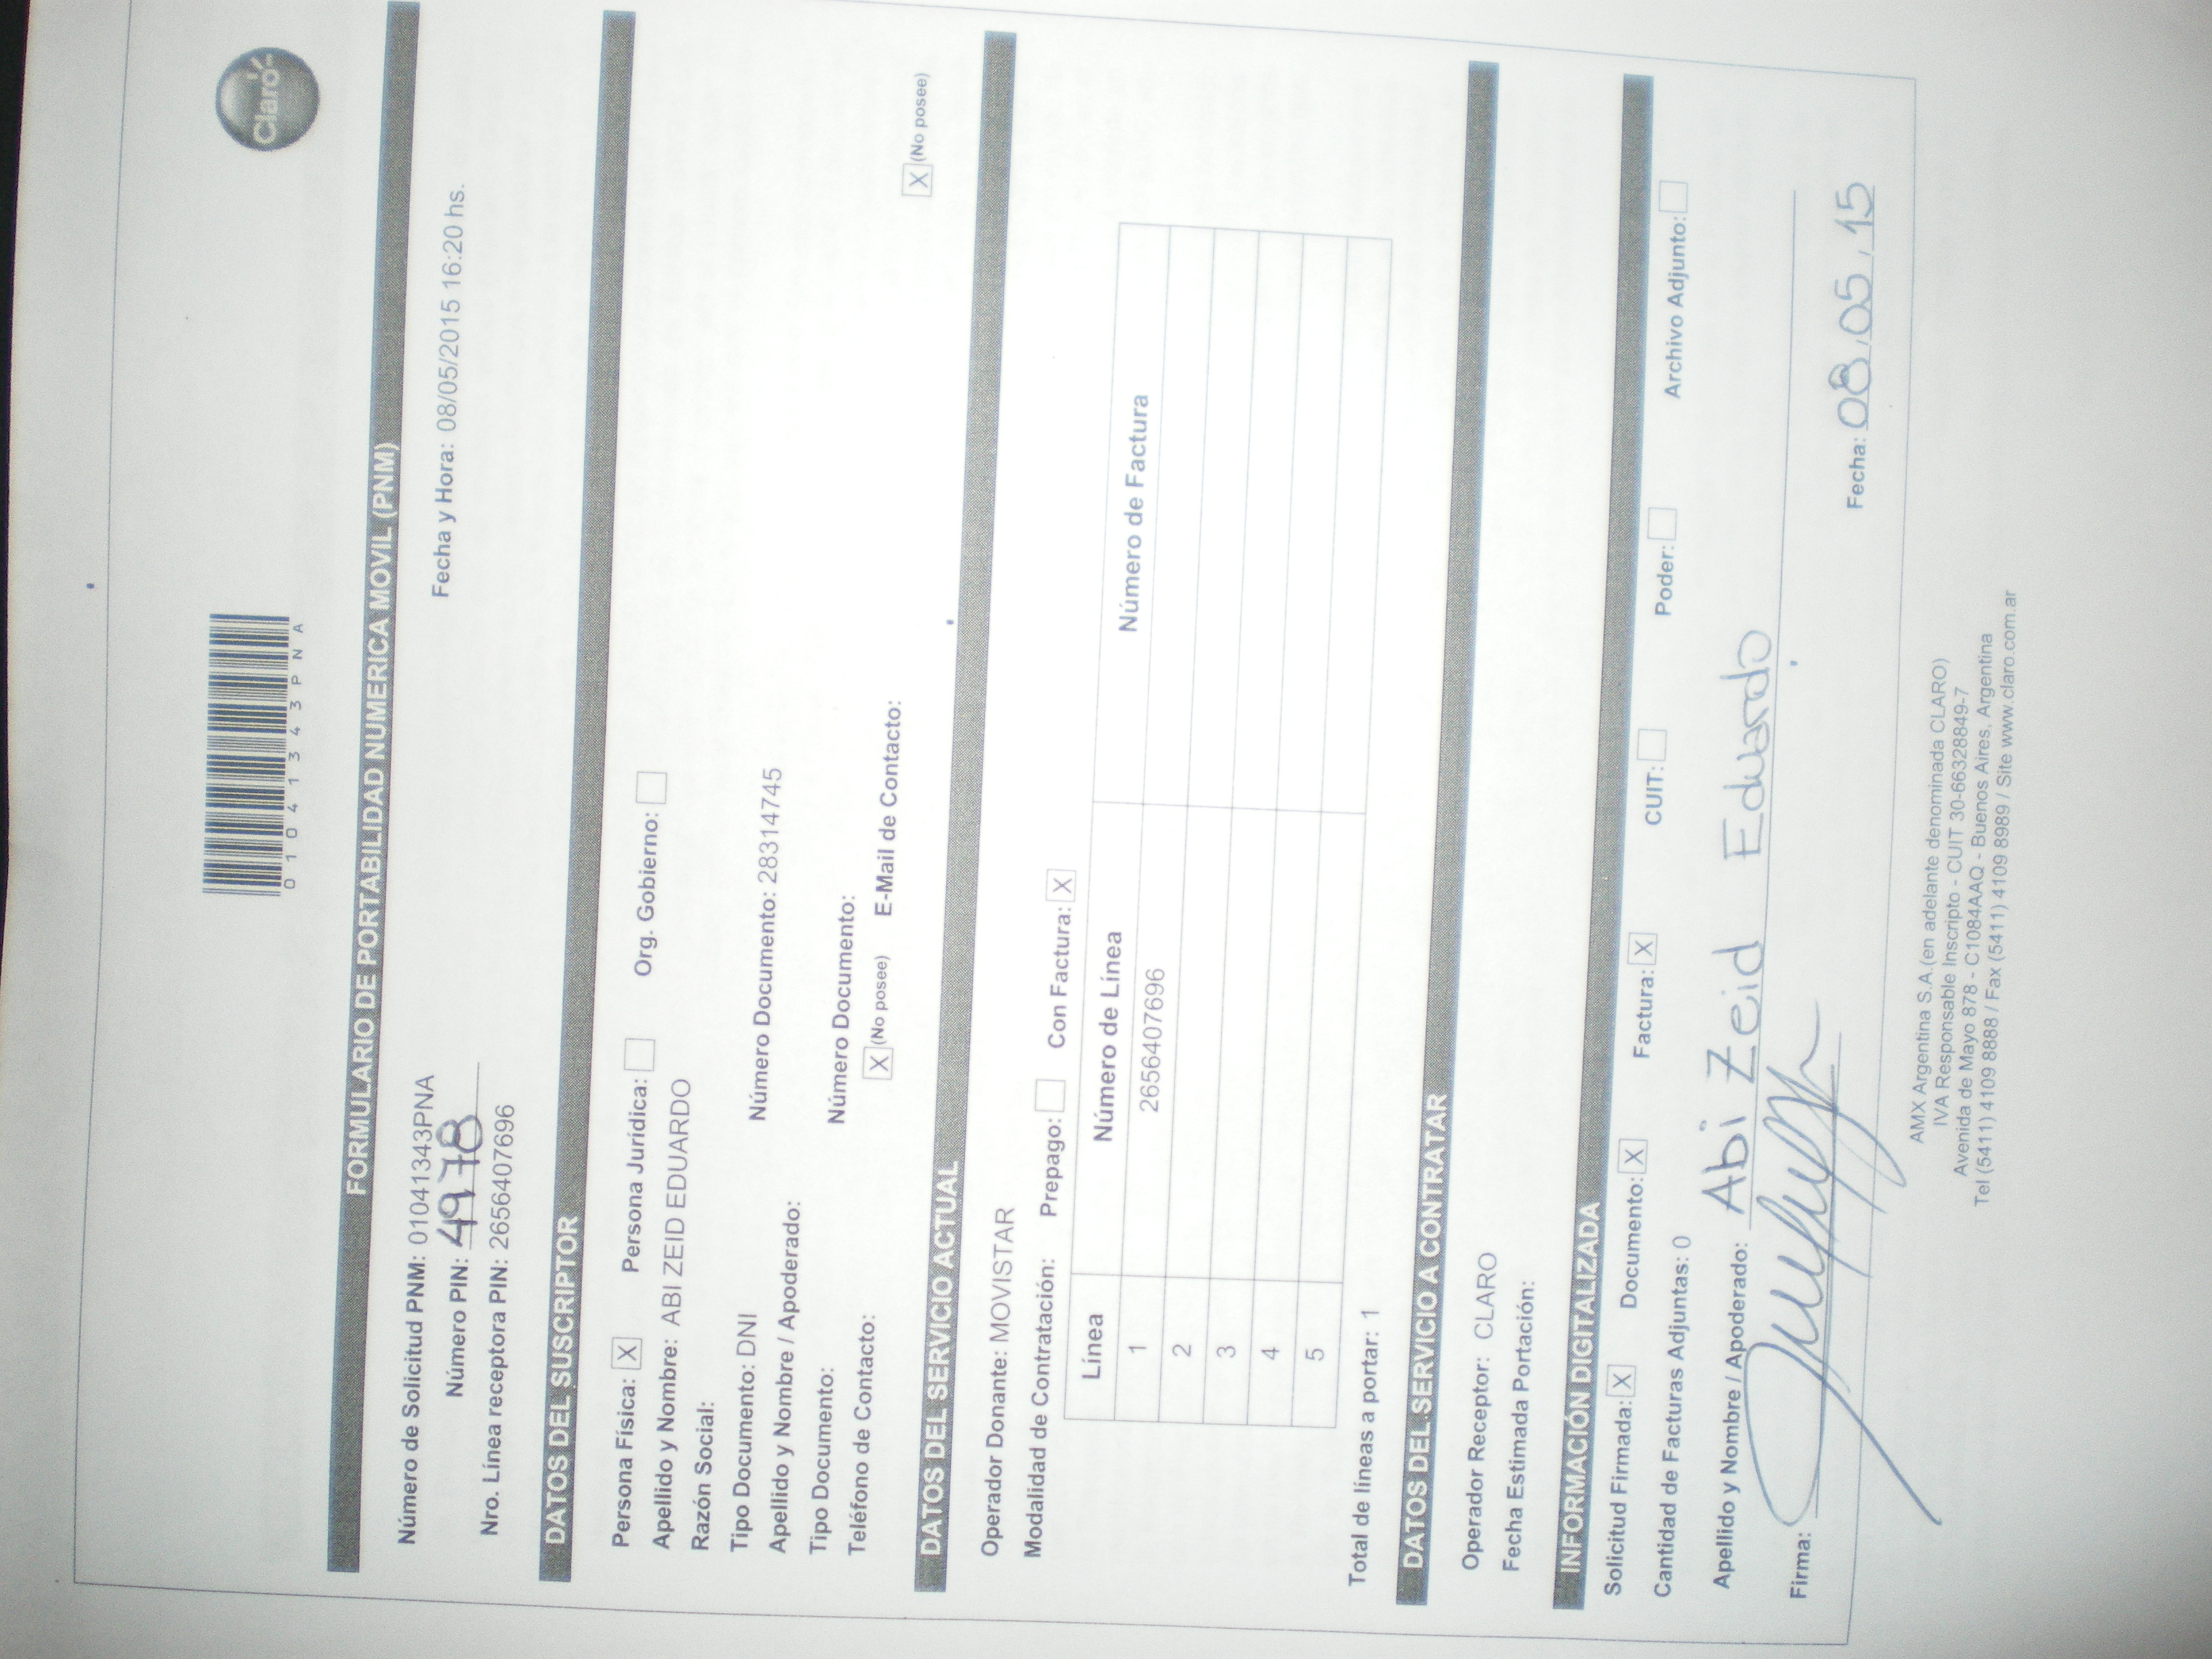 Claro
01041343PNA
FORMULARIO DE PORTABILIDAD NUMERICA MOVIL (PNM)
Número de Solicitud PNM: 01041343PNA
Fecha y Hora: 08/05/2015 16:20 hs.
Número PIN: 4978
Nro. Línea receptora PIN: 2656407696
DATOS DEL SUSCRIPTOR
Persona Física: X Persona Jurídica: Org. Gobierno:
Apellido y Nombre: ABI ZEID EDUARDO
Razón Social:
Tipo Documento: DNI Número Documento: 28314745
Apellido y Nombre / Apoderado:
Tipo Documento: Número Documento:
Teléfono de Contacto: X (No posee) E-Mail de Contacto: X (No posee)
DATOS DEL SERVICIO ACTUAL
Operador Donante: MOVISTAR
Modalidad de Contratación: Prepago: Con Factura: X
Línea Número de Línea Número de Factura
1 2656407696
2
3
4
5
Total de líneas a portar: 1
DATOS DEL SERVICIO A CONTRATAR
Operador Receptor: CLARO
Fecha Estimada Portación:
INFORMACIÓN DIGITALIZADA
Solicitud Firmada: X Documento: X Factura: X CUIT: Poder: Archivo Adjunto:
Cantidad de Facturas Adjuntas: 0
Apellido y Nombre / Apoderado: Abi Zeid Eduardo
Firma:
Fecha: 08,05,15
AMX Argentina S.A.(en adelante denominada CLARO)
IVA Responsable Inscripto - CUIT 30-66328849-7
Avenida de Mayo 878 - C1084AAQ - Buenos Aires, Argentina
Tel (5411) 4109 8888 / Fax (5411) 4109 8989 / Site www.claro.com.ar